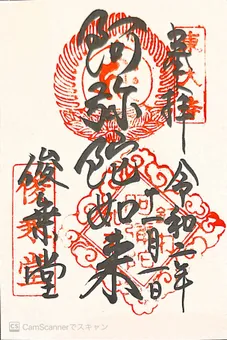 奉拝
東大寺
令和二年
十二月一日
阿弥陀如来
俊乗堂
俊乗堂
CS CamScannerでスキャン